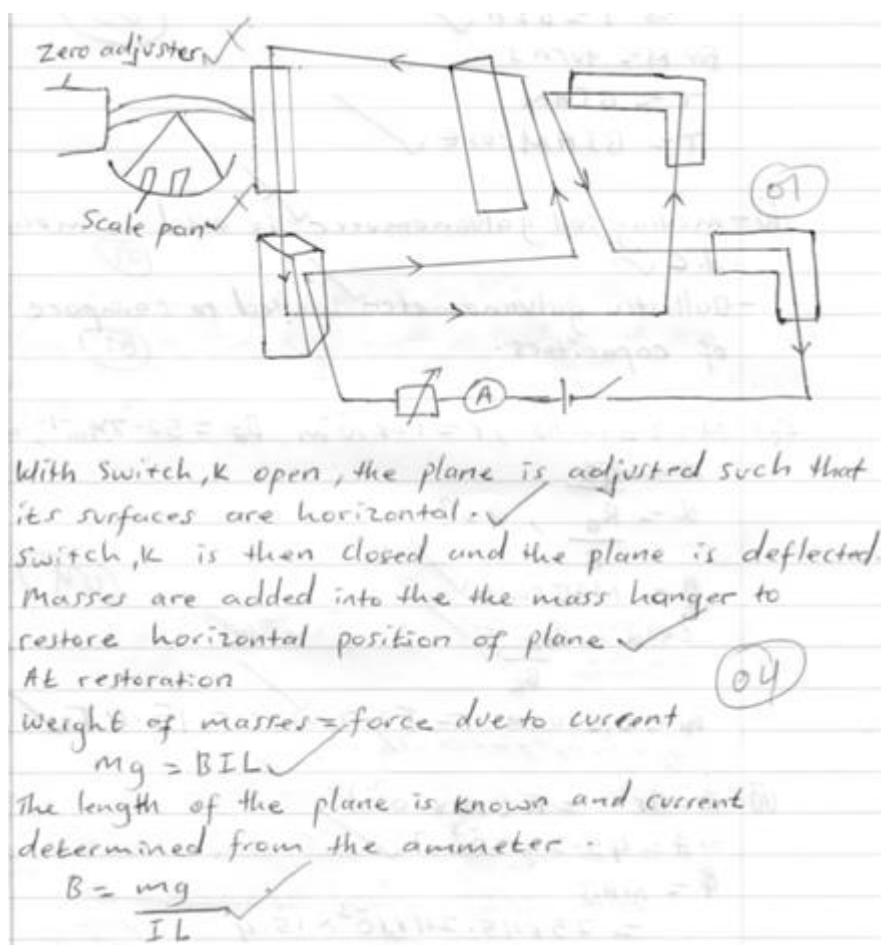 Zero adjuster
01
Scale pan
A
With Switch, K open, the plane is adjusted such that
its surfaces are horizontal.
Switch, K is then closed and the plane is deflected.
Masses are added into the the mass hanger to
restore horizontal position of plane
04
At restoration
Weight of masses = force due to current
Mg = BIL
The length of the plane is known and current
determined from the ammeter.
B = mg
IL